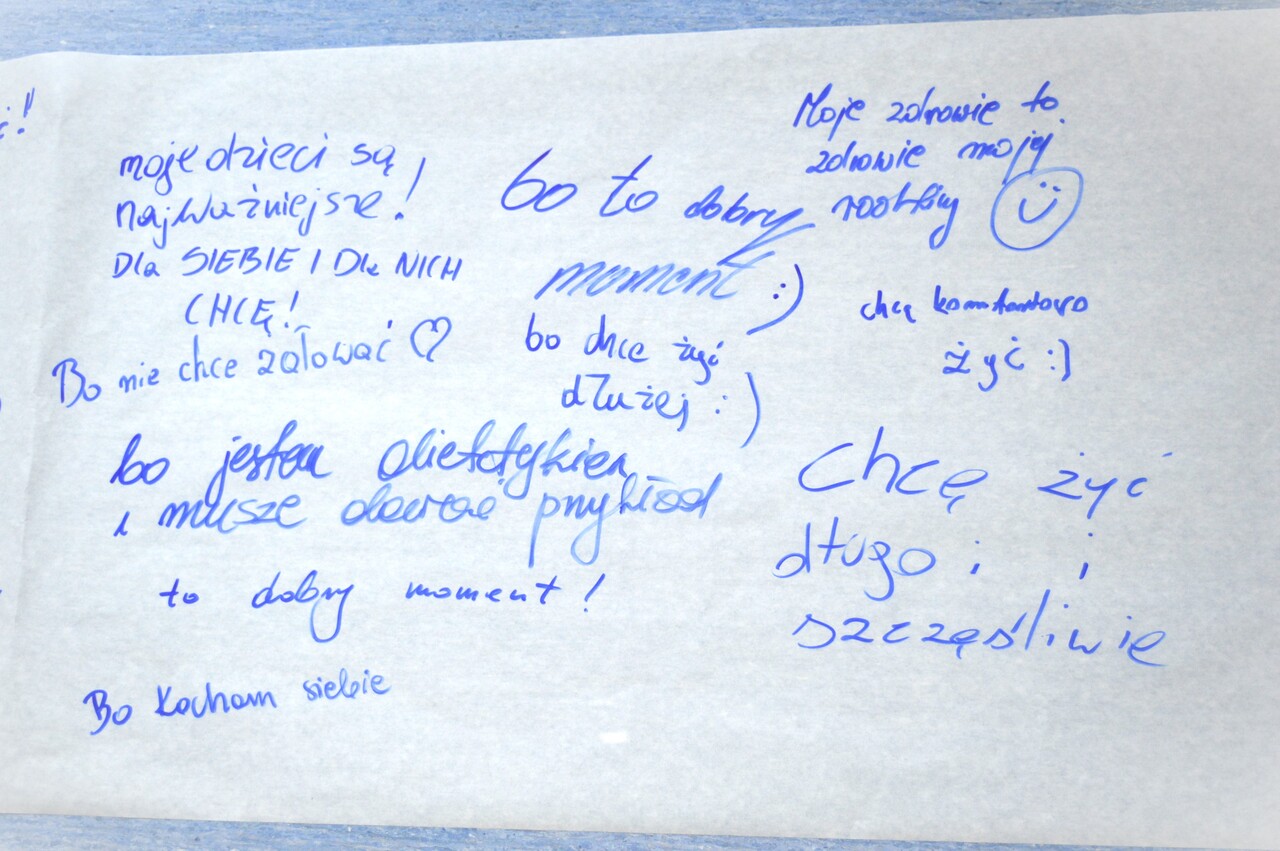 moje dzieci są
najważniejsze!
Dla SIEBIE I Dla NICH
CHCĘ!
Bo nie chce żałować ♡
bo to dobry
moment :)
bo chce żyć
dłużej :)
Moje zdrowie to
zdrowie mojej
rodziny
chcę komfortowo
żyć :)
bo jestem dietetykiem
i musze dawać przykład
to dobry moment!
Bo kocham siebie
Chcę żyć
długo i i
szczęśliwie